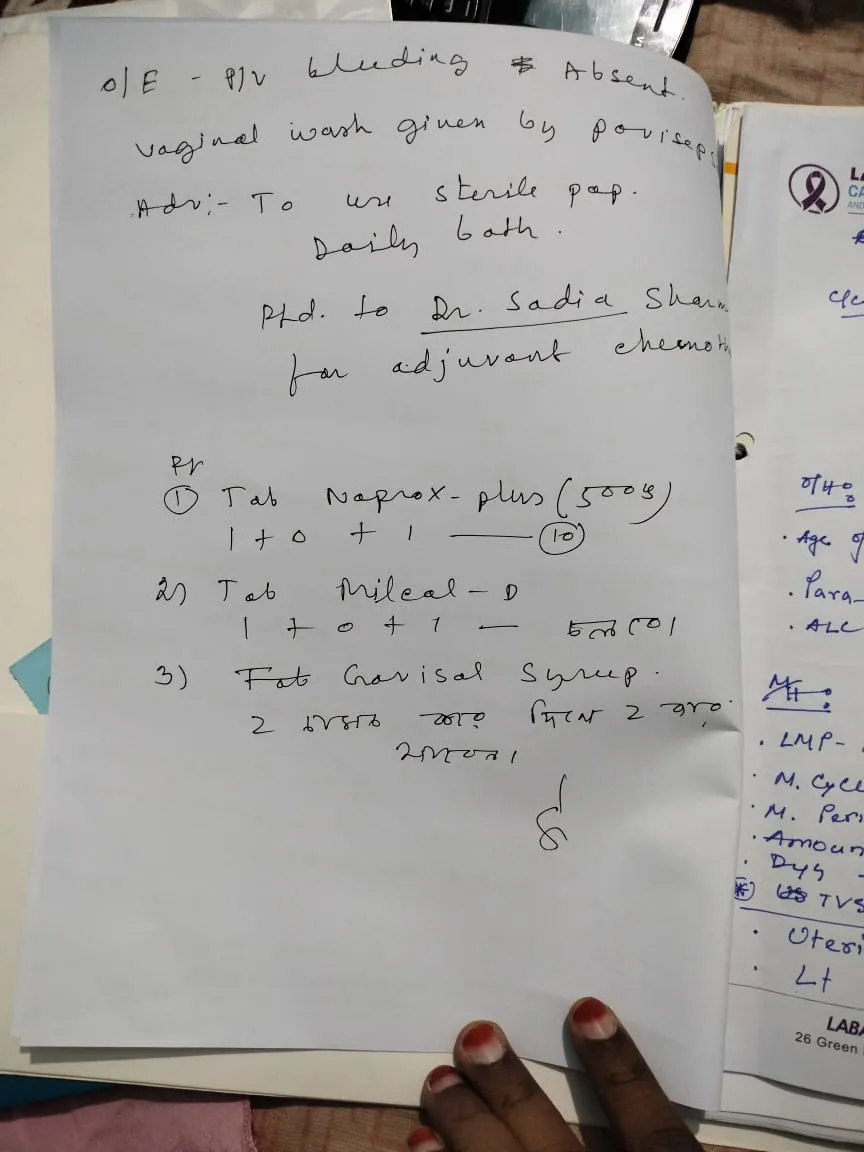 O/E - P/V bleeding Absent.
vaginal wash given by povisep
Adv:- To use sterile pap.
Daily bath.
Ptd. to Dr. Sadia Sharm
for adjuvant chemoth
Rx
① Tab Naprox-plus (500mg)
1 + 0 + 1 —— ⑩
2) Tab Milcal-D
1 + 0 + 1 — চলবে।
3) Gavisol Syrup.
2 চামচ করে দিনে 2 বার
খাবেন।
LA
CA
AND
O/H:
. Age of
. Para-
. ALC
MH:
. LMP-
. M. Cycl
. M. Peri
. Amoun
. Dys -
TVS
. Uteri
. Lt
LABA
26 Green